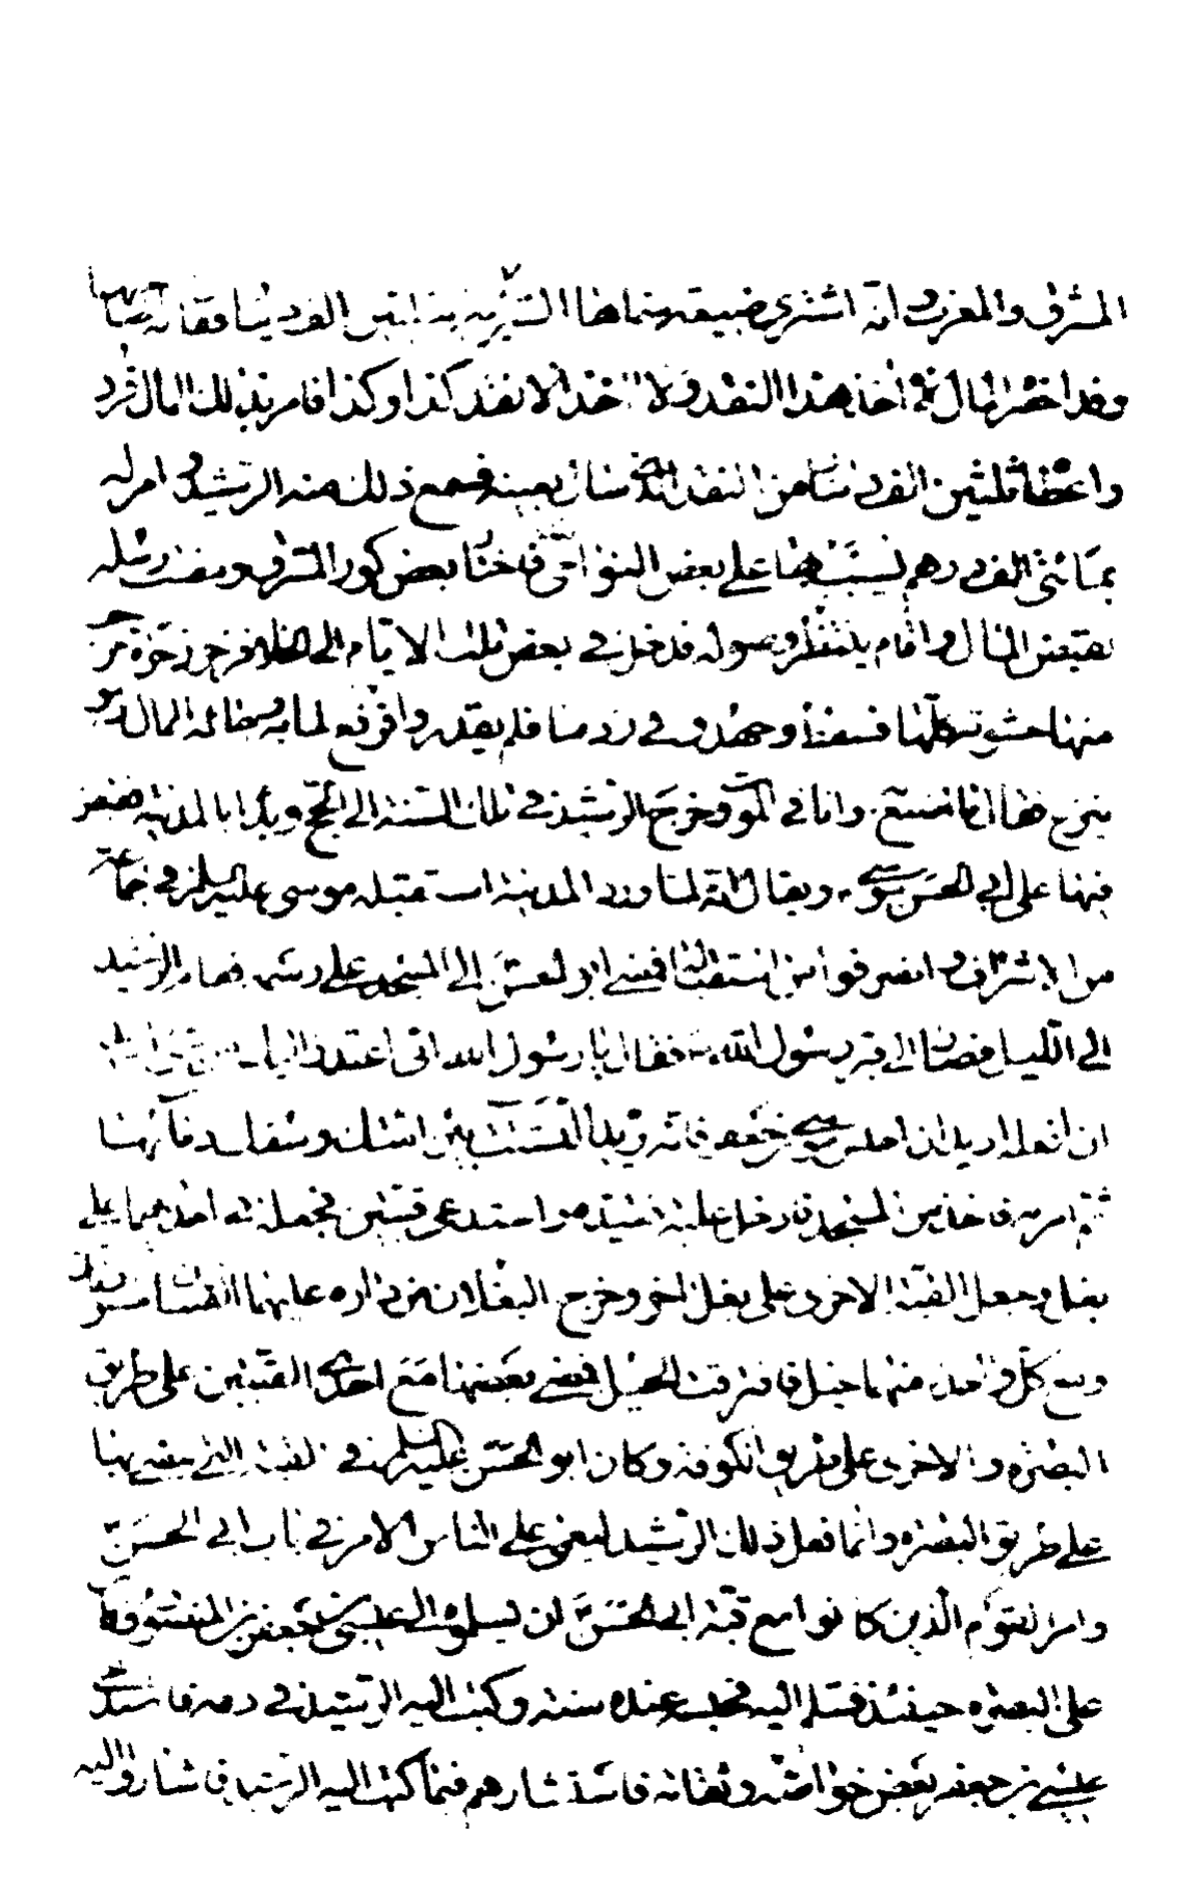 المشرق والمغرب وانه اشترى ضيعة سماها اليسيرية بثلثين الف دينار فقال له صاحبها
وقد احضر المال لا اخذ هذا النقد ولا اخذ الا نقد كذا وكذا فامر بذلك المال فرد
واعطاه ثلثين الف دينار من النقد الذي سال بعينه فسمع ذلك منه الرشيد وامر له
بمائتي الف درهم تسبب بها على بعض النواحي فاختار بعض كور المشرق ومضت رسله
لقبض المال واقام ينتظر وصوله فدخل في بعض تلك الايام الى الخلاء فزحر زحرة خرجت
منها حشوته كلها فسقط وجهدوا في ردها فلم يقدروا فوقع لما به وجاءه المال وهو
ينزع فقال ما اصنع به وانا في الموت وخرج الرشيد في تلك السنة الى الحج وبدا بالمدينة فقبض
فيها على ابي الحسن موسى ويقال انه لما ورد المدينة استقبله موسى عليه السلم في جماعة
من الاشراف وانصرفوا من استقباله فمضى ابو الحسن الى المسجد على رسمه فقام الرشيد
الى الليل فصار الى قبر رسول الله فقال يا رسول الله اني اعتذر اليك من شي اريد
ان افعله اريد ان احبس موسى بن جعفر فانه يريد التشتيت بين امتك وسفك دمائها
ثم امر به فاخذ من المسجد فادخل عليه فقيده واستدعى قبتين فجعله في احديهما على
بغل وجعل القبة الاخرى على بغل اخر وخرج البغلان من داره عليهما القبتان مستورتان
ومع كل واحد منهما خيل فافترقت الخيل فمضى بعضها مع احدى القبتين على طريق
البصرة والاخرى على طريق الكوفة وكان ابو الحسن عليه السلم في القبة التي مضى بها
على طريق البصرة وانما فعل ذلك الرشيد ليعمي على الناس الامر في باب ابي الحسن
وامر القوم الذين كانوا مع قبة ابي الحسن ان يسلموه الى عيسى بن جعفر بن المنصور وكان
على البصرة حينئذ فسلم اليه فحبسه عنده سنة وكتب اليه الرشيد في دمه فاستدعى
عيسى بن جعفر بعض خواصه وثقاته فاستشارهم فيما كتب اليه الرشيد فاشاروا اليه